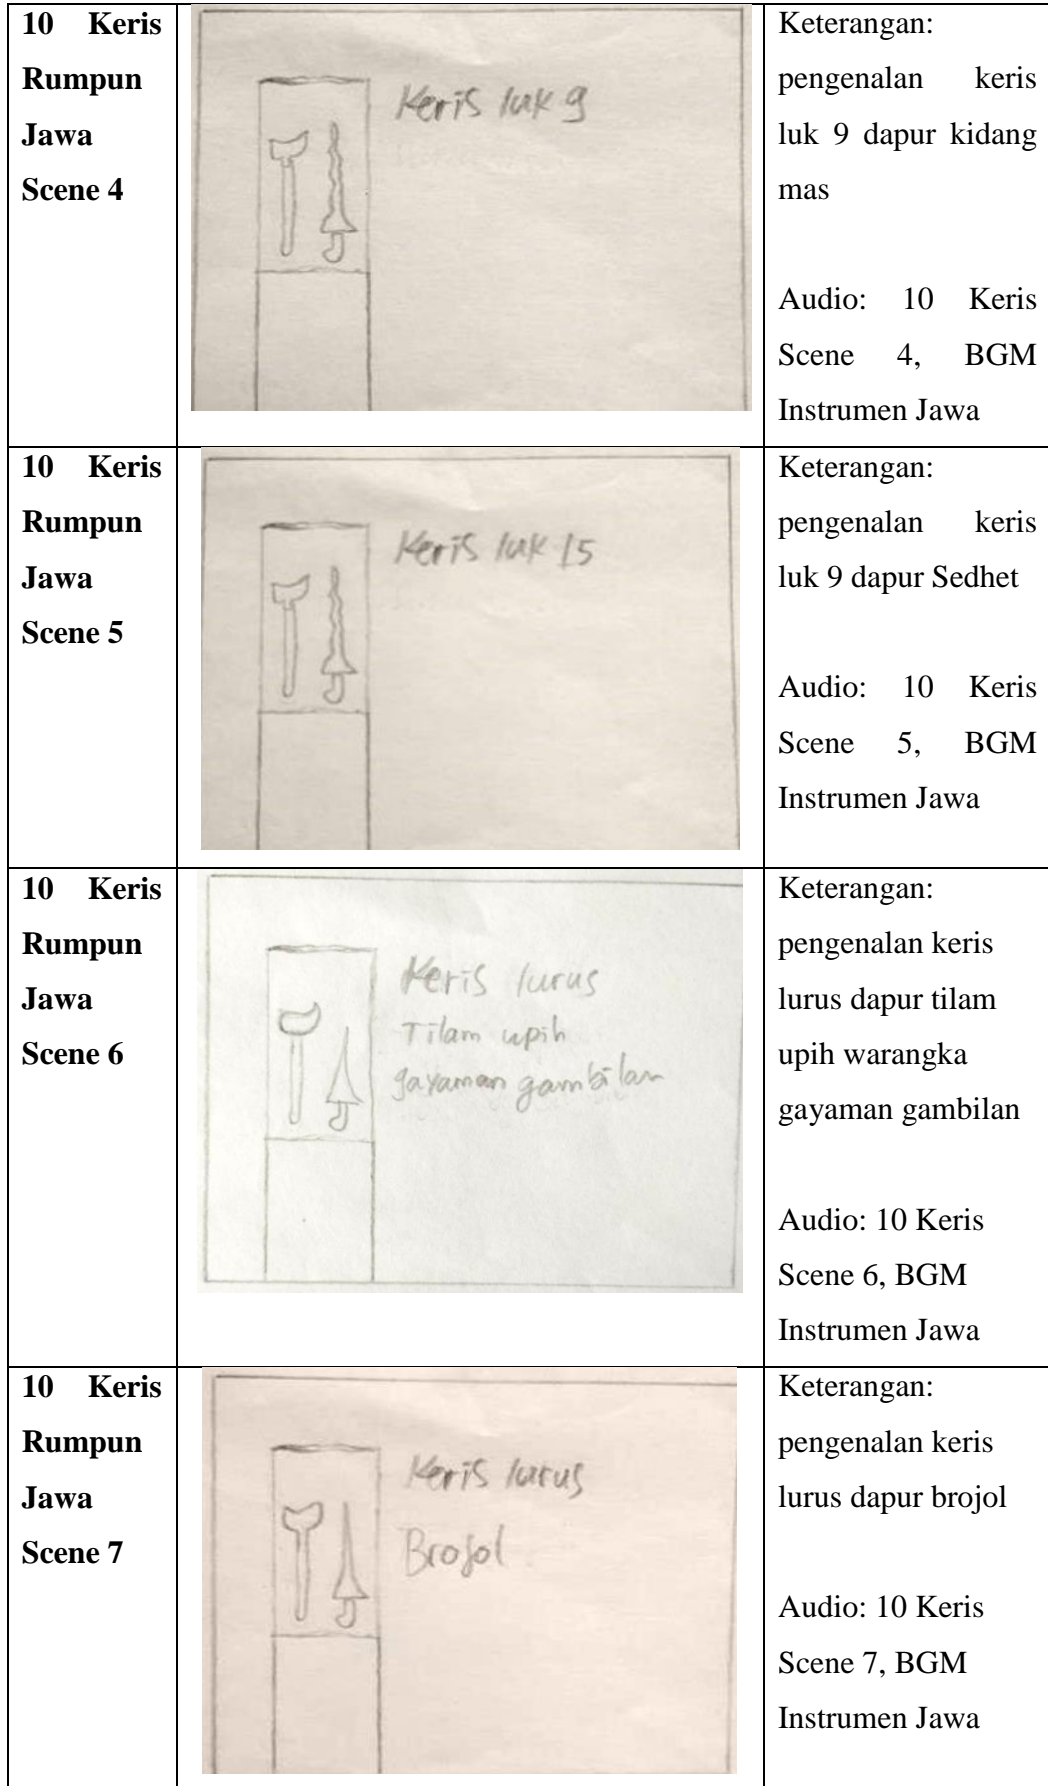 10 Keris
Rumpun
Jawa
Scene 4
Keris luk 9
Keterangan:
pengenalan keris
luk 9 dapur kidang
mas
Audio: 10 Keris
Scene 4, BGM
Instrumen Jawa
10 Keris
Rumpun
Jawa
Scene 5
Keris luk 15
Keterangan:
pengenalan keris
luk 9 dapur Sedhet
Audio: 10 Keris
Scene 5, BGM
Instrumen Jawa
10 Keris
Rumpun
Jawa
Scene 6
Keris lurus
Tilam upih
gayaman gambilan
Keterangan:
pengenalan keris
lurus dapur tilam
upih warangka
gayaman gambilan
Audio: 10 Keris
Scene 6, BGM
Instrumen Jawa
10 Keris
Rumpun
Jawa
Scene 7
Keris lurus
Brojol
Keterangan:
pengenalan keris
lurus dapur brojol
Audio: 10 Keris
Scene 7, BGM
Instrumen Jawa